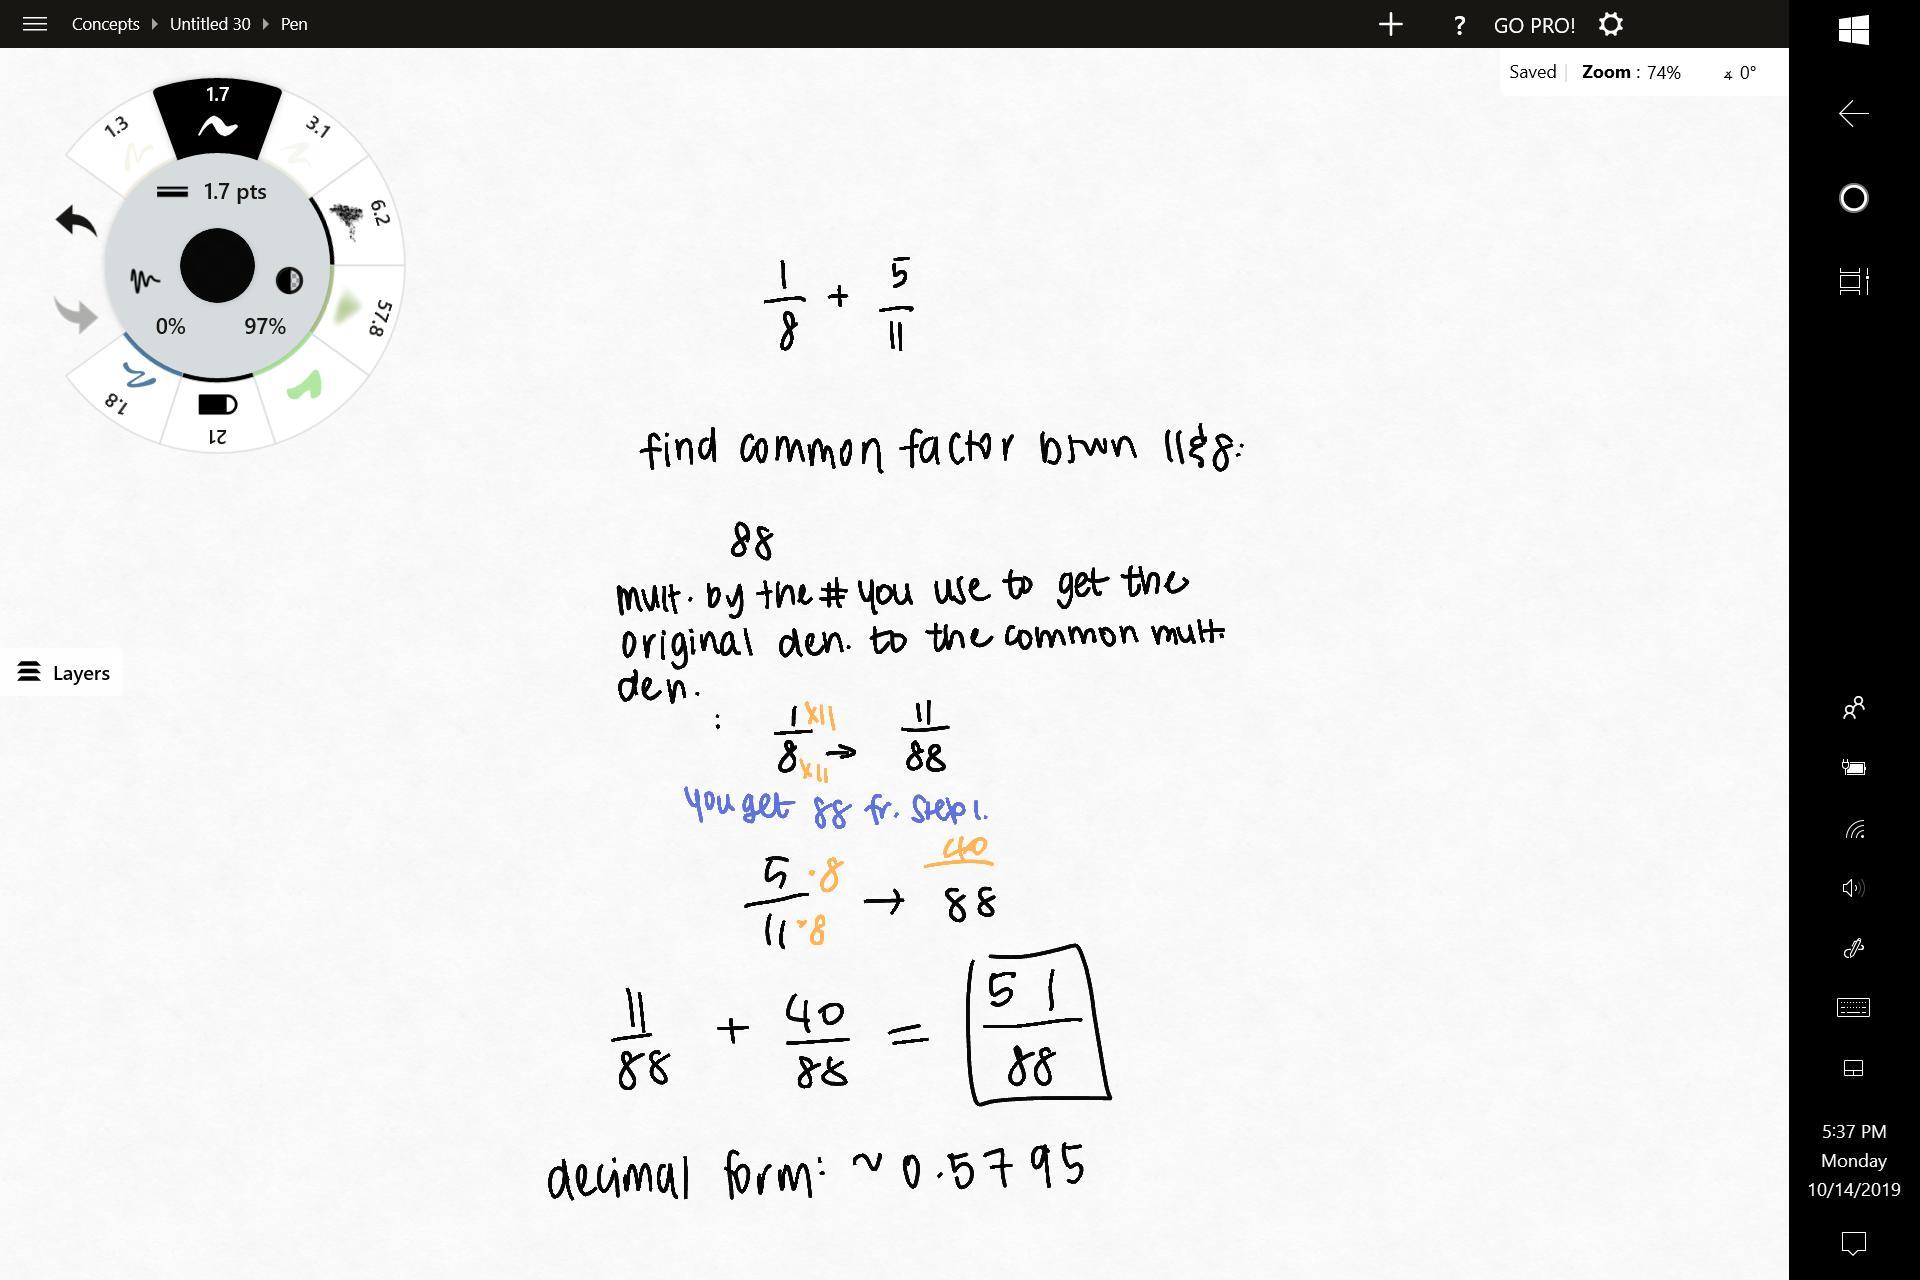 Concepts Untitled 30 Pen
? GO PRO!
Saved Zoom : 74% 0°
1.7
1.3
3.1
1.7 pts
6.2
0% 97%
57.8
1.8
21
Layers
1/8 + 5/11
find common factor btwn 11&8:
88
mult. by the # you use to get the
original den. to the common mult.
den.
: 1 x11 / 8 x11 → 11/88
you get 88 fr. step 1.
5 ·8 / 11 ·8 → 40/88
11/88 + 40/88 = 51/88
decimal form: ~ 0.5795
5:37 PM
Monday
10/14/2019